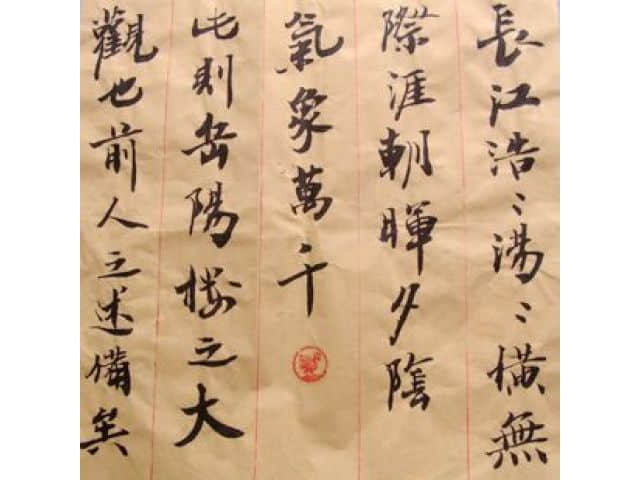 長江浩〻湯〻橫無
際涯朝暉夕陰
氣象萬千
此則岳陽樓之大
觀也前人之述備矣